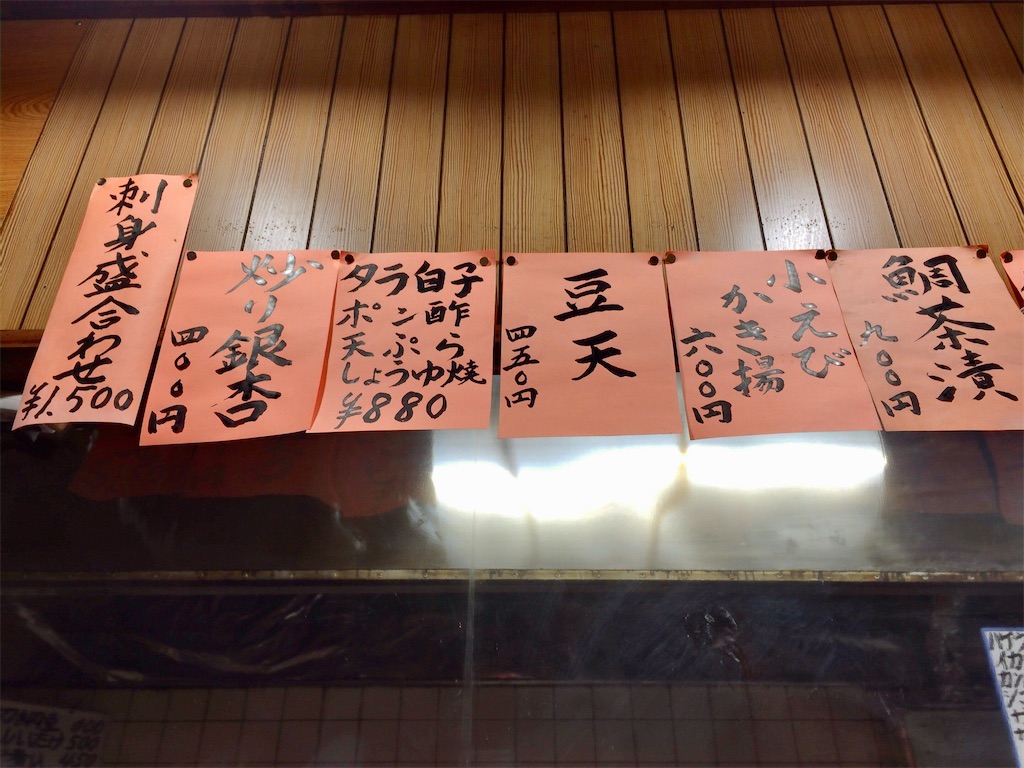 刺身盛合わせ
¥1.500
炒り銀杏
四〇〇円
タラ白子
ポン酢
天ぷら
しょうゆ焼
¥880
豆天
四五〇円
小えび
かき揚
六〇〇円
鯛茶漬
九〇〇円